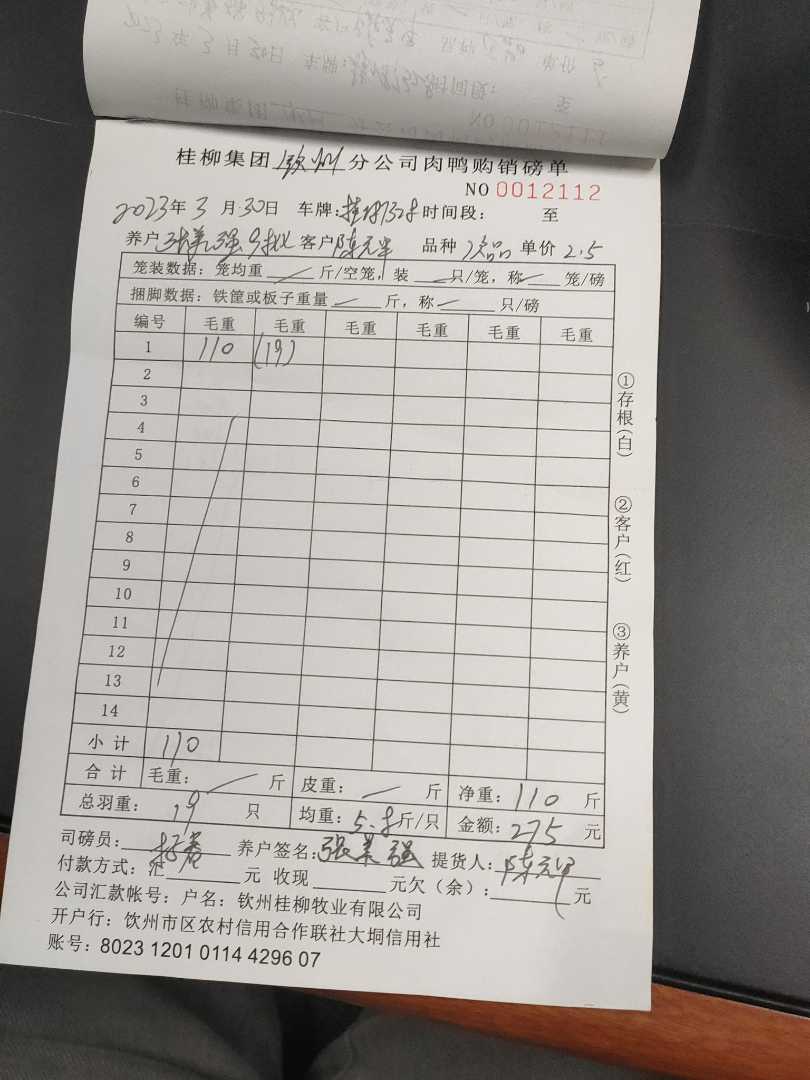 桂柳集团 钦州 分公司肉鸭购销磅单
NO 0012112
2023年 3 月 30日 车牌: 时间段: 至
养户 张美强 客户 陈元军 品种 次品 单价 2.5
笼装数据: 笼均重 斤/空笼, 装 只/笼, 称 笼/磅
捆脚数据: 铁筐或板子重量 斤, 称 只/磅
编号 毛重 毛重 毛重 毛重 毛重 毛重
1 110 (19)
2
3
4
5
6
7
8
9
10
11
12
13
14
小 计 110
合 计 毛重: 斤 皮重: 斤 净重: 110 斤
总羽重: 19 只 均重: 5.8斤/只 金额: 275 元
司磅员: 养户签名: 张美强 提货人: 陈元军
付款方式: 汇 元 收现 元欠(余): 元
公司汇款帐号: 户名: 钦州桂柳牧业有限公司
开户行: 钦州市区农村信用合作联社大垌信用社
账号: 8023 1201 0114 4296 07
①存根(白)
②客户(红)
③养户(黄)